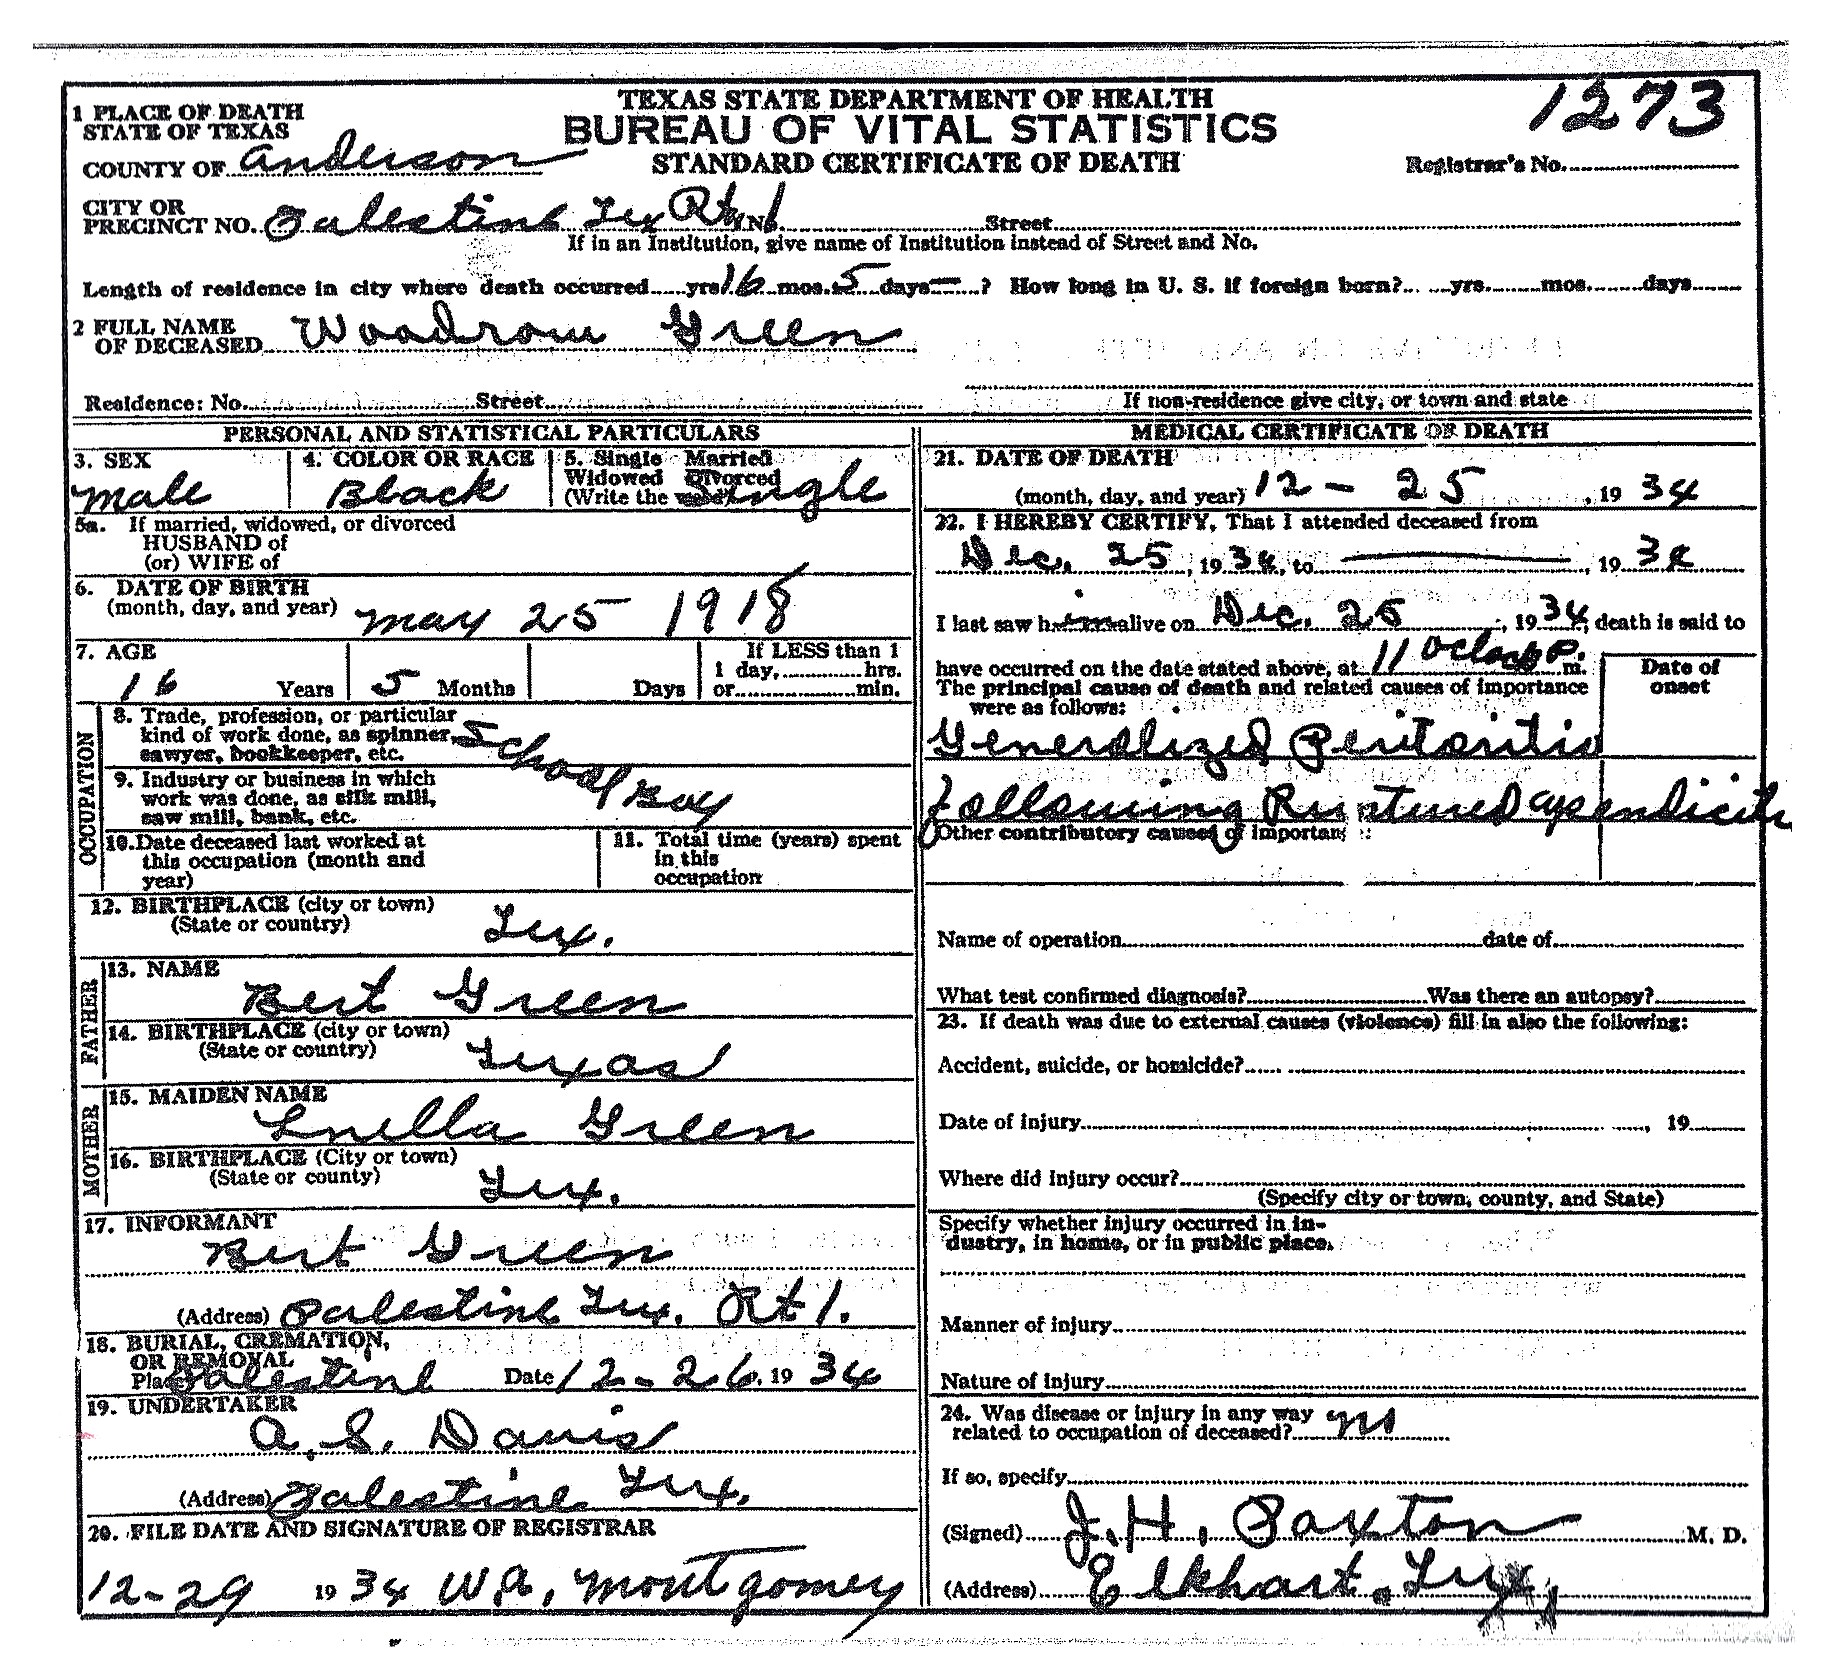 TEXAS STATE DEPARTMENT OF HEALTH
BUREAU OF VITAL STATISTICS
STANDARD CERTIFICATE OF DEATH
1273
Registrar's No.
1 PLACE OF DEATH
STATE OF TEXAS
COUNTY OF Anderson
CITY OR
PRECINCT NO. Palestine Tex Rt 1 Street
If in an Institution, give name of Institution instead of Street and No.
Length of residence in city where death occurred yrs 16 mos. 5 days — ? How long in U. S. if foreign born? yrs. mos. days
2 FULL NAME
OF DECEASED Woodrow Green
Residence: No. Street
If non-residence give city, or town and state
PERSONAL AND STATISTICAL PARTICULARS
3. SEX 4. COLOR OR RACE 5. Single Married
Widowed Divorced
(Write the word)
Male Black Single
5a. If married, widowed, or divorced
HUSBAND of
(or) WIFE of
6. DATE OF BIRTH
(month, day, and year) May 25 1918
7. AGE If LESS than 1
1 day, hrs.
16 Years 5 Months Days or min.
OCCUPATION
8. Trade, profession, or particular
kind of work done, as spinner,
sawyer, bookkeeper, etc.
School Boy
9. Industry or business in which
work was done, as silk mill,
saw mill, bank, etc.
10. Date deceased last worked at
this occupation (month and
year)
11. Total time (years) spent
in this
occupation
12. BIRTHPLACE (city or town)
(State or country) Tex.
FATHER
13. NAME
Bert Green
14. BIRTHPLACE (city or town)
(State or country) Texas
MOTHER
15. MAIDEN NAME
Luella Green
16. BIRTHPLACE (City or town)
(State or county) Tex.
17. INFORMANT
Bert Green
(Address) Palestine Tex. Rt 1.
18. BURIAL, CREMATION,
OR REMOVAL
Place Palestine Date 12-26, 1934
19. UNDERTAKER
A. S. Davis
(Address) Palestine Tex.
20. FILE DATE AND SIGNATURE OF REGISTRAR
12-29 1934 W.A. Montgomery
MEDICAL CERTIFICATE OF DEATH
21. DATE OF DEATH
(month, day, and year) 12 - 25, 1934
22. I HEREBY CERTIFY, That I attended deceased from
Dec. 25, 1934, to —, 1934
I last saw him alive on Dec. 25, 1934, death is said to
have occurred on the date stated above, at 11 Oclock P. m.
The principal cause of death and related causes of importance
were as follows:
Date of
onset
Generalized Peritonitis
following Ruptured appendicitis
Other contributory causes of importance:
Name of operation date of
What test confirmed diagnosis? Was there an autopsy?
23. If death was due to external causes (violence) fill in also the following:
Accident, suicide, or homicide?
Date of injury, 19
Where did injury occur?
(Specify city or town, county, and State)
Specify whether injury occurred in in-
dustry, in home, or in public place.
Manner of injury
Nature of injury
24. Was disease or injury in any way
related to occupation of deceased? no
If so, specify
(Signed) J. H. Paxton M. D.
(Address) Elkhart, Tex,